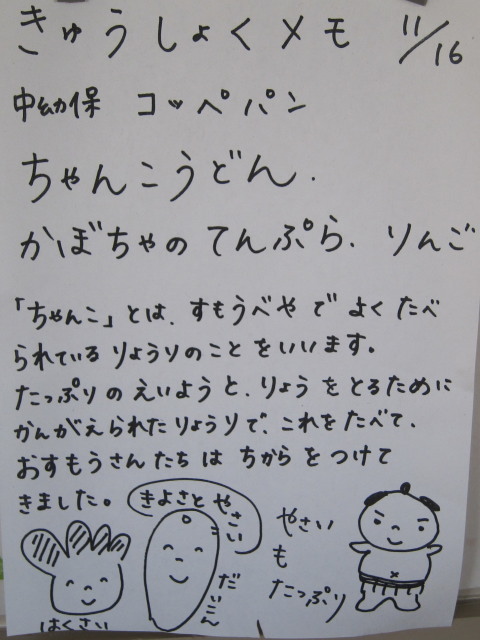 きゅうしょくメモ 11/16
中幼保 コッペパン
ちゃんこうどん.
かぼちゃのてんぷら. りんご
「ちゃんこ」とは、すもうべやでよくたべ
られているりょうりのことをいいます。
たっぷりのえいようと、りょうをとるために
かんがえられたりょうりで、これをたべて、
おすもうさんたちはちからをつけて
きました。
きよさとやさい
はくさい
だいこん
やさい
も
たっぷり